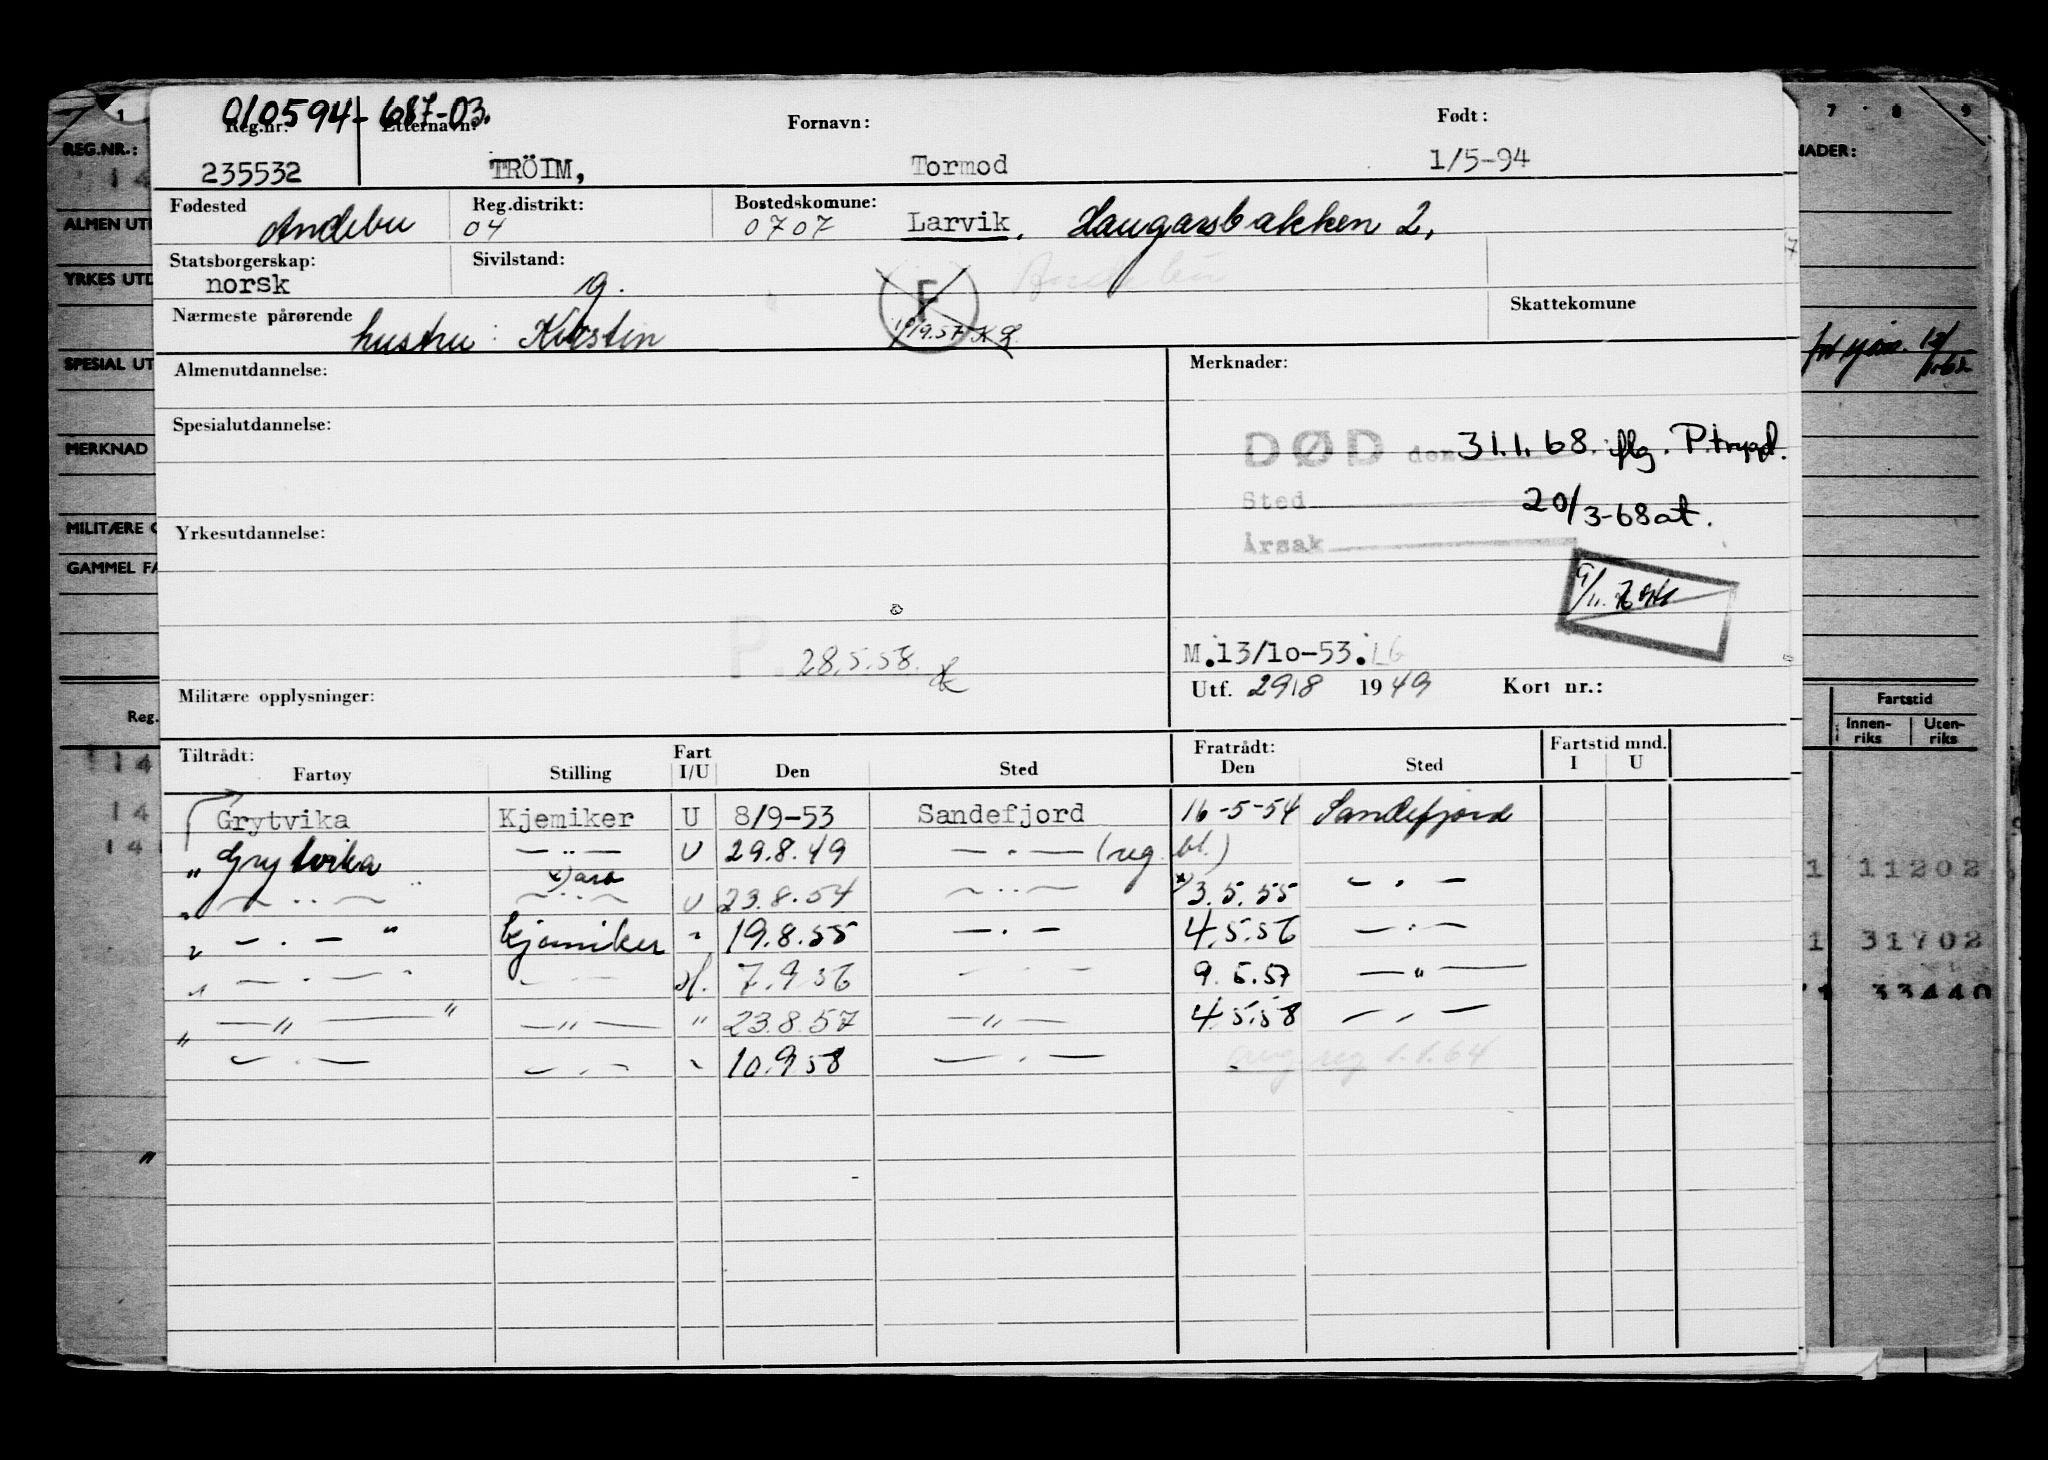 010594-687-03.
Reg.nr: Etternavn: Fornavn: Født:
235532 TRÖIM, Tormod 1/5-94
Fødested Andebu Reg.distrikt: 04 Bostedskomune: 0707 Larvik. Haugarsbakken 2,
Statsborgerskap: norsk Sivilstand: g. F Andebu
Nærmeste pårørende hustru: Kirstin Skattekomune
Almenutdannelse: Merknader:
Spesialutdannelse: DØD den 31.1.68. iflg. P.trygd.
Sted 20/3-68 at.
Yrkesutdannelse: Årsak
P. 28.5.58. M.13/10-53. LG
Militære opplysninger: Utf. 29/8 1949 Kort nr.:
Tiltrådt: Fratrådt: Fartstid mnd.
Fartøy Stilling Fart I/U Den Sted Den Sted I U
Grytvika Kjemiker U 8/9-53 Sandefjord 16-5-54 Sandefjord
" Grytvika — " — U 29.8.49 — " — (reg. bl.)
" — " — x) — " — U 23.8.54 — " — x) 3.5.55 — " —
" — " — " kjemiker " 19.8.55 — " — 4.5.56 — " —
" — " — — " — 7.9.56 — " — 9.5.57 — " —
" — " — " — " — " 23.8.57 — " — 4.5.58 — " —
— " — — " — " 10.9.58 — " — avg reg 1.1.64
1
REG.NR.:
14
ALMEN UTD
YRKES UTD
SPESIAL UT
MERKNAD
MILITÆRE O
GAMMEL FA
Reg.
114
14
141
"
7 8 9
NADER:
Fartstid
Innenriks Utenriks
1 11202
1 31702
71 33440